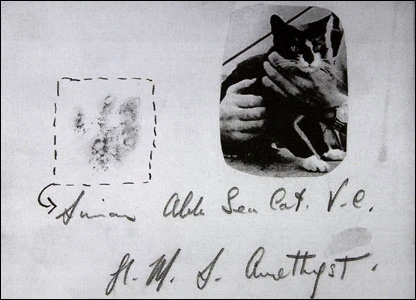 Simon Able Sea Cat. V.C.
H. M. S. Amethyst.